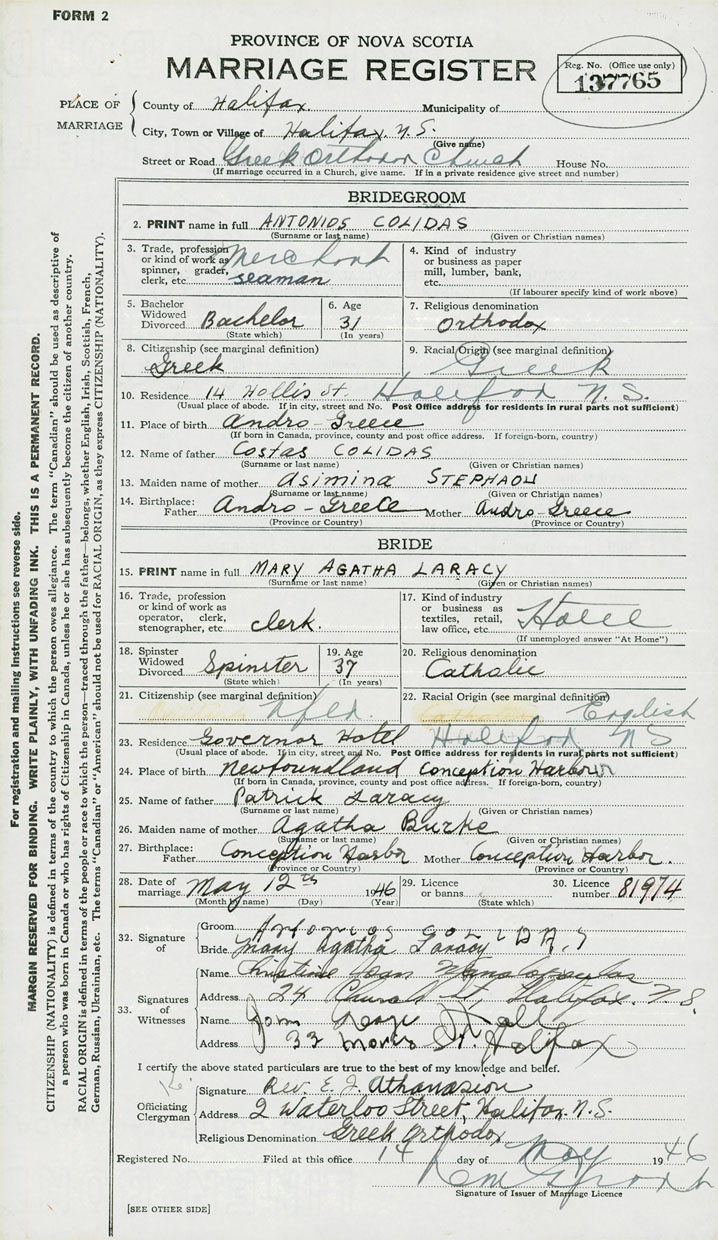 FORM 2
PROVINCE OF NOVA SCOTIA
MARRIAGE REGISTER
Reg. No. (Office use only)
137765
PLACE OF MARRIAGE
County of Halifax. Municipality of
City, Town or Village of Halifax, N.S.
(Give name)
Street or Road Greek Orthodox Church House No.
(If marriage occurred in a Church, give name. If in a private residence give street and number)
BRIDEGROOM
2. PRINT name in full ANTONIOS COLIDAS
(Surname or last name) (Given or Christian names)
3. Trade, profession or kind of work as spinner, grader, clerk, etc. Merchant seaman
4. Kind of industry or business as paper mill, lumber, bank, etc.
(If labourer specify kind of work above)
5. Bachelor Widowed Divorced Bachelor
(State which)
6. Age 31
(In years)
7. Religious denomination
Orthodox
8. Citizenship (see marginal definition)
Greek
9. Racial Origin (see marginal definition)
Greek
10. Residence 14 Hollis St Halifax N.S.
(Usual place of abode. If in city, street and No. Post Office address for residents in rural parts not sufficient)
11. Place of birth Andro - Greece
(If born in Canada, province, county and post office address. If foreign-born, country)
12. Name of father Costas COLIDAS
(Surname or last name) (Given or Christian names)
13. Maiden name of mother Asimina STEPHAOU
(Surname or last name) (Given or Christian names)
14. Birthplace: Father Andro - Greece Mother Andro - Greece
(Province or Country) (Province or Country)
BRIDE
15. PRINT name in full MARY AGATHA LARACY
(Surname or last name) (Given or Christian names)
16. Trade, profession or kind of work as operator, clerk, stenographer, etc. clerk.
17. Kind of industry or business as textiles, retail, law office, etc. Hotel
(If unemployed answer "At Home")
18. Spinster Widowed Divorced Spinster
(State which)
19. Age 37
(In years)
20. Religious denomination
Catholic
21. Citizenship (see marginal definition)
Nfld.
22. Racial Origin (see marginal definition)
English
23. Residence Governor Hotel Halifax N S
(Usual place of abode. If in city, street and No. Post Office address for residents in rural parts not sufficient)
24. Place of birth Newfoundland Conception Harbour
(If born in Canada, province, county and post office address. If foreign-born, country)
25. Name of father Patrick Laracy
(Surname or last name) (Given or Christian names)
26. Maiden name of mother Agatha Burke
(Surname or last name) (Given or Christian names)
27. Birthplace: Father Conception Harbor Mother Conception Harbor.
(Province or Country) (Province or Country)
28. Date of marriage May 12th 1946
(Month by name) (Day) (Year)
29. Licence or banns
(State which)
30. Licence number 81974
32. Signature of
Groom Antonios COLIDAS
Bride Mary Agatha Laracy
33. Signatures of Witnesses
Name Christine Joan
Address 24 St, Halifax. N.S.
Name
Address 33 Morris St. Halifax
I certify the above stated particulars are true to the best of my knowledge and belief.
Officiating Clergyman
Signature Rev. E. J. Athanasiou
Address 2 Waterloo Street, Halifax. N.S.
Religious Denomination Greek Orthodox
Registered No. Filed at this office 14 day of May 1946
Signature of Issuer of Marriage Licence
[SEE OTHER SIDE]
For registration and mailing instructions see reverse side.
MARGIN RESERVED FOR BINDING. WRITE PLAINLY, WITH UNFADING INK. THIS IS A PERMANENT RECORD.
CITIZENSHIP (NATIONALITY) is defined in terms of the country to which the person owes allegiance. The term "Canadian" should be used as descriptive of
a person who was born in Canada or who has rights of Citizenship in Canada, unless he or she has subsequently become the citizen of another country.
RACIAL ORIGIN is defined in terms of the people or race to which the person—traced through the father—belongs, whether English, Irish, Scottish, French,
German, Russian, Ukrainian, etc. The terms "Canadian" or "American" should not be used for RACIAL ORIGIN, as they express CITIZENSHIP (NATIONALITY).